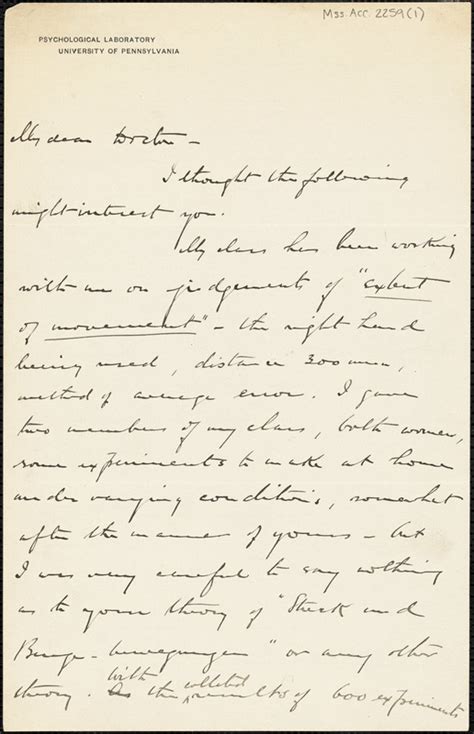 Mss. Acc. 2259(1)
PSYCHOLOGICAL LABORATORY
UNIVERSITY OF PENNSYLVANIA
My dear Doctor –
I thought the following
might interest you.
My class has been working
with me on judgements of "extent
of movement" – the right hand
being used, distance 300 mm,
method of average error. I gave
two members of my class, both women,
some experiments to make at home
under varying conditions, somewhat
after the manner of yours – but
I was very careful to say nothing
as to your theory of "Streck und
Beuge – bewegungen" or any other
theory. With the collected results of 600 experiments